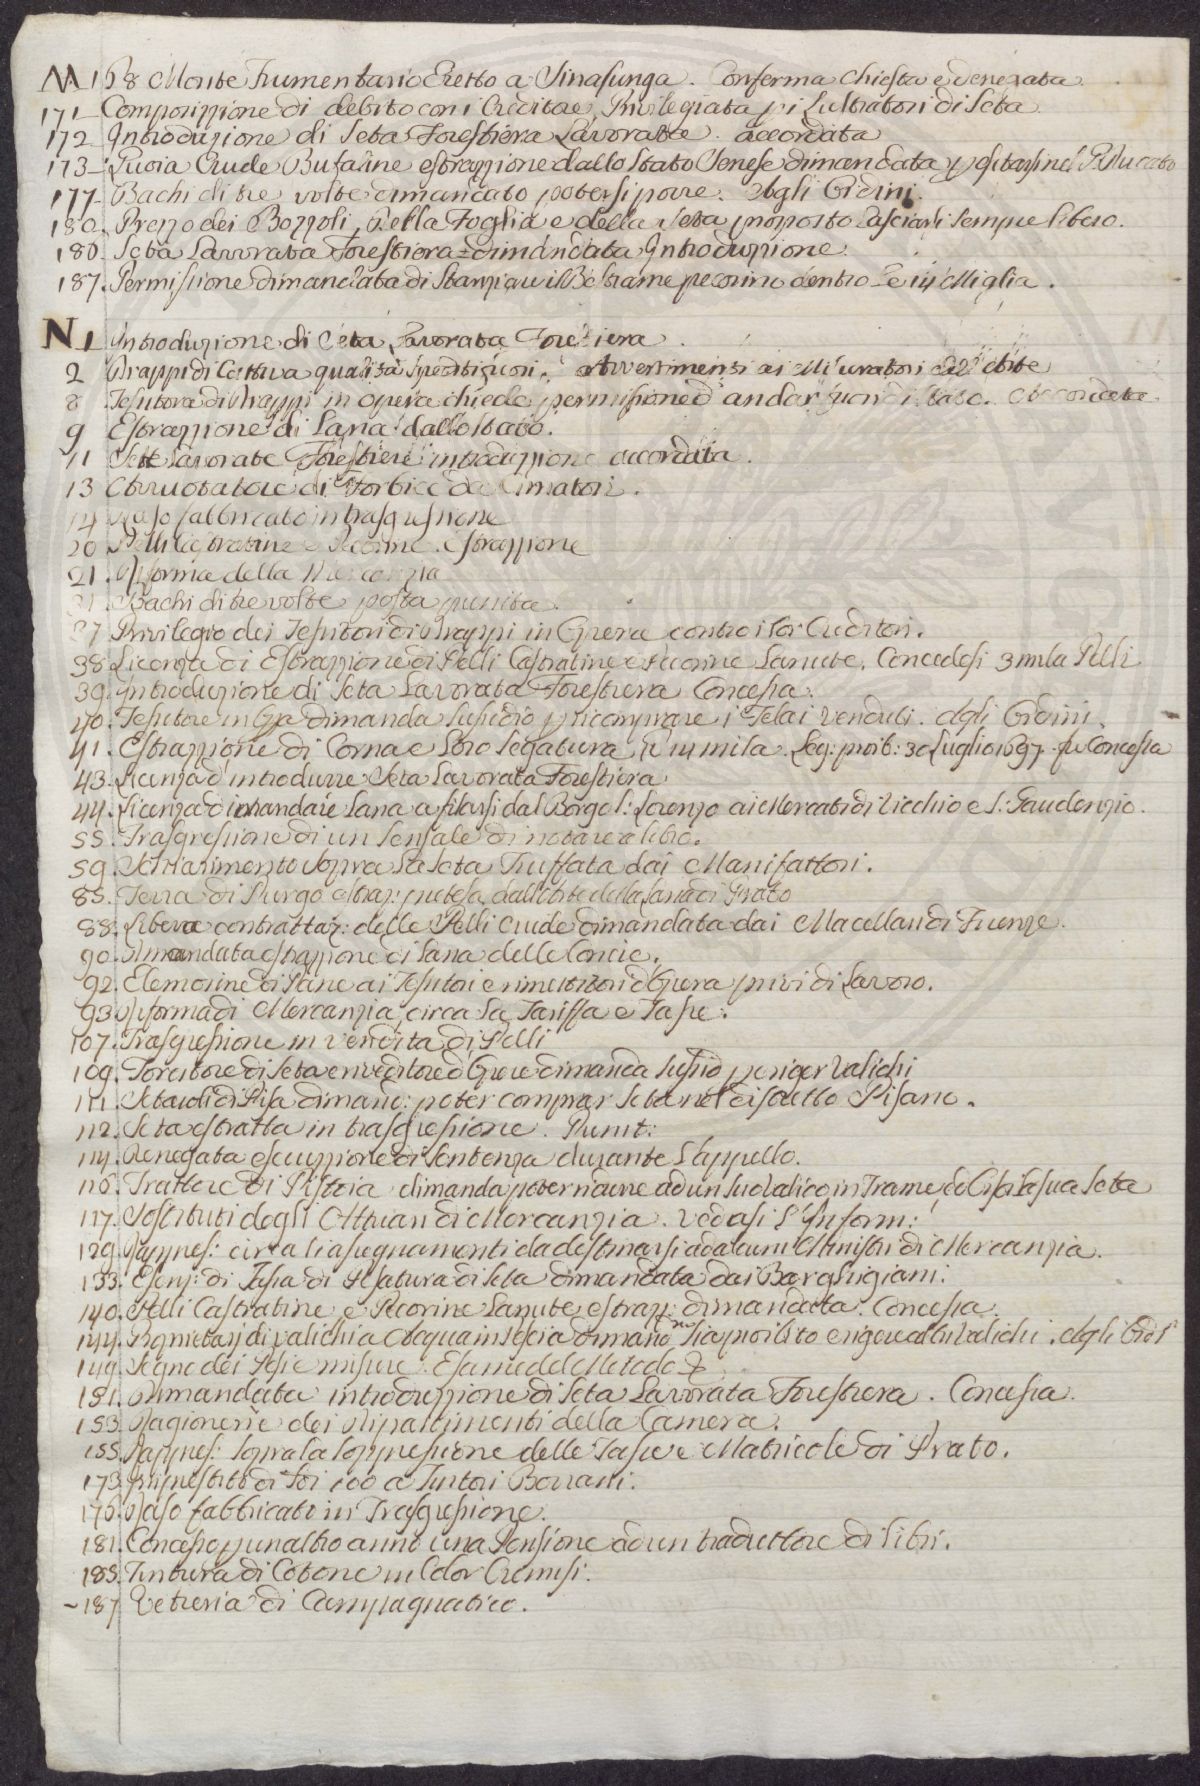 M 168 Monte Frumentario Eretto a Sinalunga. Conferma chiesta e denegata.
171 Composizzione di debito con i Creditori, Privilegiata p i Lustratori di Seta
172 Introduzione di Seta Forestiera Lavorata. accordata
173 Cuoia Crude Bufaline estrazzione dallo Stato Senese dimandata
177 Bachi di tre volte dimandato potersi porre. Agli Ordini.
180. Prezzo dei Bozzoli, della Foglia e della Seta proposto lasciarli sempre libero.
180. Seta Lavorata Forestiera dimandata Introduzzione.
187. Permissione dimandata di Stanziare il Bestiame pecorino dentro le 14 Miglia.
N 1 Introduzione di Seta Lavorata Forestiera.
2 Drappi di Cattiva qualità spediti fuori. Avvertimenti ai Misuratori dell' Arte
8 Tessitora di Drappi in opera chiede permissione d' andar fuori di Stato. Accordata
9 Estrazzione di Lana dallo Stato.
11 Sete Lavorate Forestiere introduzzione accordata.
13 Arruotatore di Forbice da Cimatori.
14 Raso fabbricato in trasgressione
20 Pelli Castratine e Pecorine. estrazzione
21. Riforma della Mercanzia
31. Bachi di tre volte posta punita.
37 Privilegio dei Tessitori di Drappi in Opera contro i loro Creditori.
38. Licenza di Estrazzione di Pelli Castratine e Pecorine Lanute. Concedesi 3 mila Pelli
39. Introduzione di Seta Lavorata Forestiera Concessa.
40. Tessitore in Opa dimanda sussidio p ricomprare i Telai venduti. Agli Ordini.
41. Estrazzione di Corna e Loro Segatura p 14 mila. Leg: proib: 30 Luglio 1697. fu Concessa
43. Licenza d' introdurre Seta Lavorata Forestiera
44. Licenza di mandare Lana a filarsi dal Borgo S: Lorenzo ai Mercati di Vicchio e S: Gaudenzio.
55. Trasgressione di un Sensale di notare a libro.
59. Schiarimento sopra la Seta Truffata dai Manifattori.
85. Terra di Purgo estraz: pretesa dall' Arte della Lana di Prato
88. Libera contrattaz: delle Pelli Crude dimandata dai Macellari di Firenze.
90. Dimandata estrazzione di Lana delle Concie.
92. Elemosine di Pane ai Tessitori e rimettitori d' Opera privi di Lavoro.
93. Riforma di Mercanzia circa la Tariffa e Tasse.
107. Trasgressione in vendita di Pelli
109. Torcitore di Seta e rivenditore d' Opere dimanda sussid p eriger Valichi
111. Setaioli di Pisa dimand: poter comprar Seta nel distretto Pisano.
112. Seta estratta in trasgressione. Punit:
114. Denegata esecuzzione di Sentenza durante l' appello.
116. Trattore di Pistoia dimanda poter ridurre ad un suo Valico in Trame ed Orsi la sua Seta
117. Sostituti degli Attuari di Mercanzia. Vedasi l' Inform:
129. Rappres: circa li assegnamenti da destinarsi ad alcuni Ministri di Mercanzia.
133. Esenz: di Tassa di Pesatura di Seta dimandata dai Barghigiani.
140. Pelli Castratine e Pecorine Lanute estraz: dimandata. Concessa
144. Proprietarj di Valichi a Acqua in Pescia dimand: no sia proibito erigere altri Valichi. Agli Ord:
149. Segno dei Pesi e misure. Esame del Metodo &
151. Dimandata introduzzione di Seta Lavorata Forestiera. Concessa.
153. Ragionerie dei Dipartimenti della Camera.
155. Rappres: sopra la soppressione delle Tasse e Matricole di Prato.
173. Imprestito di Sdi 100 a Tintori Borrani.
176. Raso fabbricato in Trasgressione.
181. Concesso p un altro anno una Pensione ad un traduttore di Libri.
185. Tintura di Cotone in Color Cremisi.
187. Vetreria di Campagnatico.